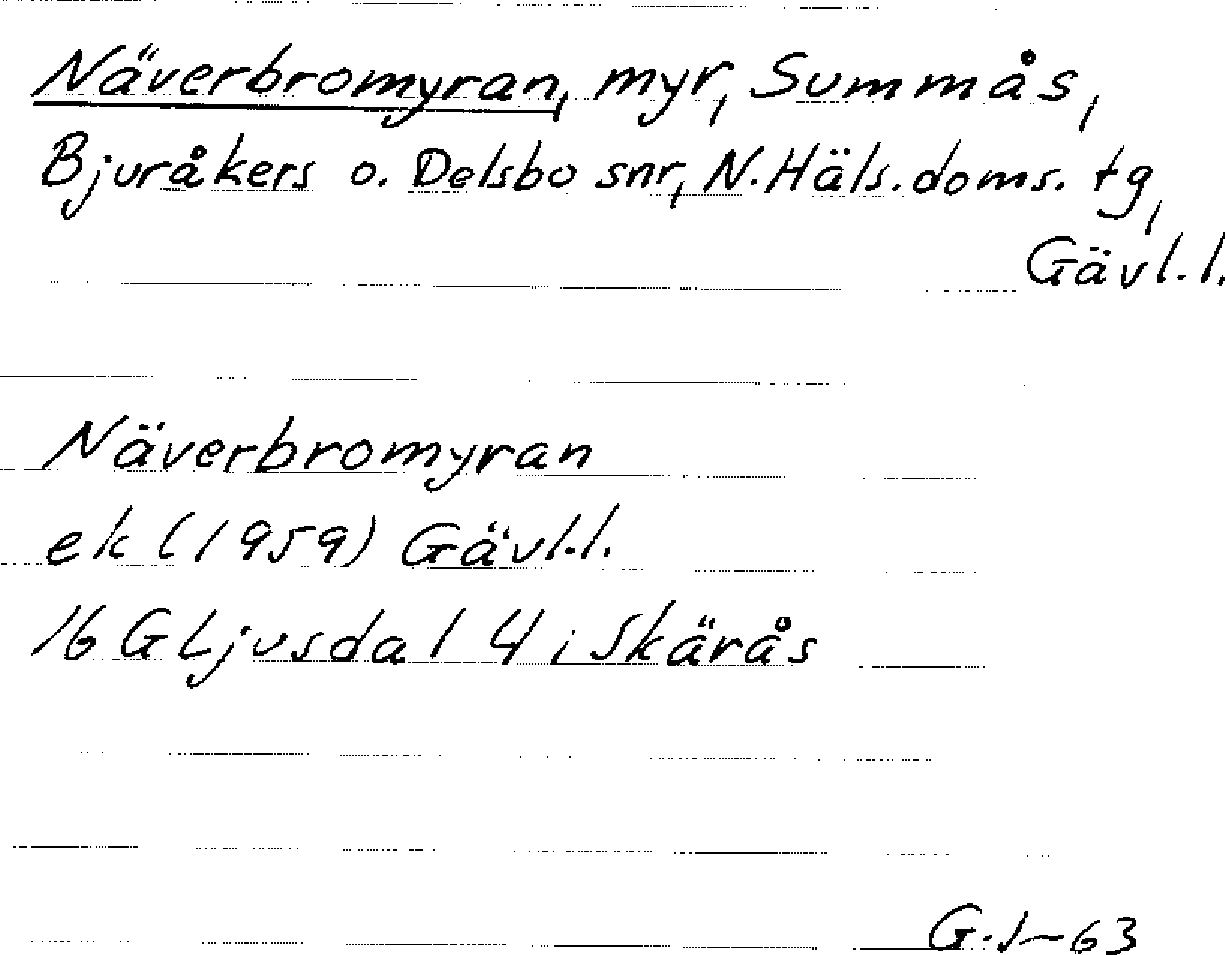 Näverbromyran, myr, Summås,
Bjuråkers o. Delsbo snr, N. Häls. doms. tg,
Gävl. l.
Näverbromyran
ek (1959) Gävl. l.
16 G Ljusdal 4 i Skärås
G. J-63